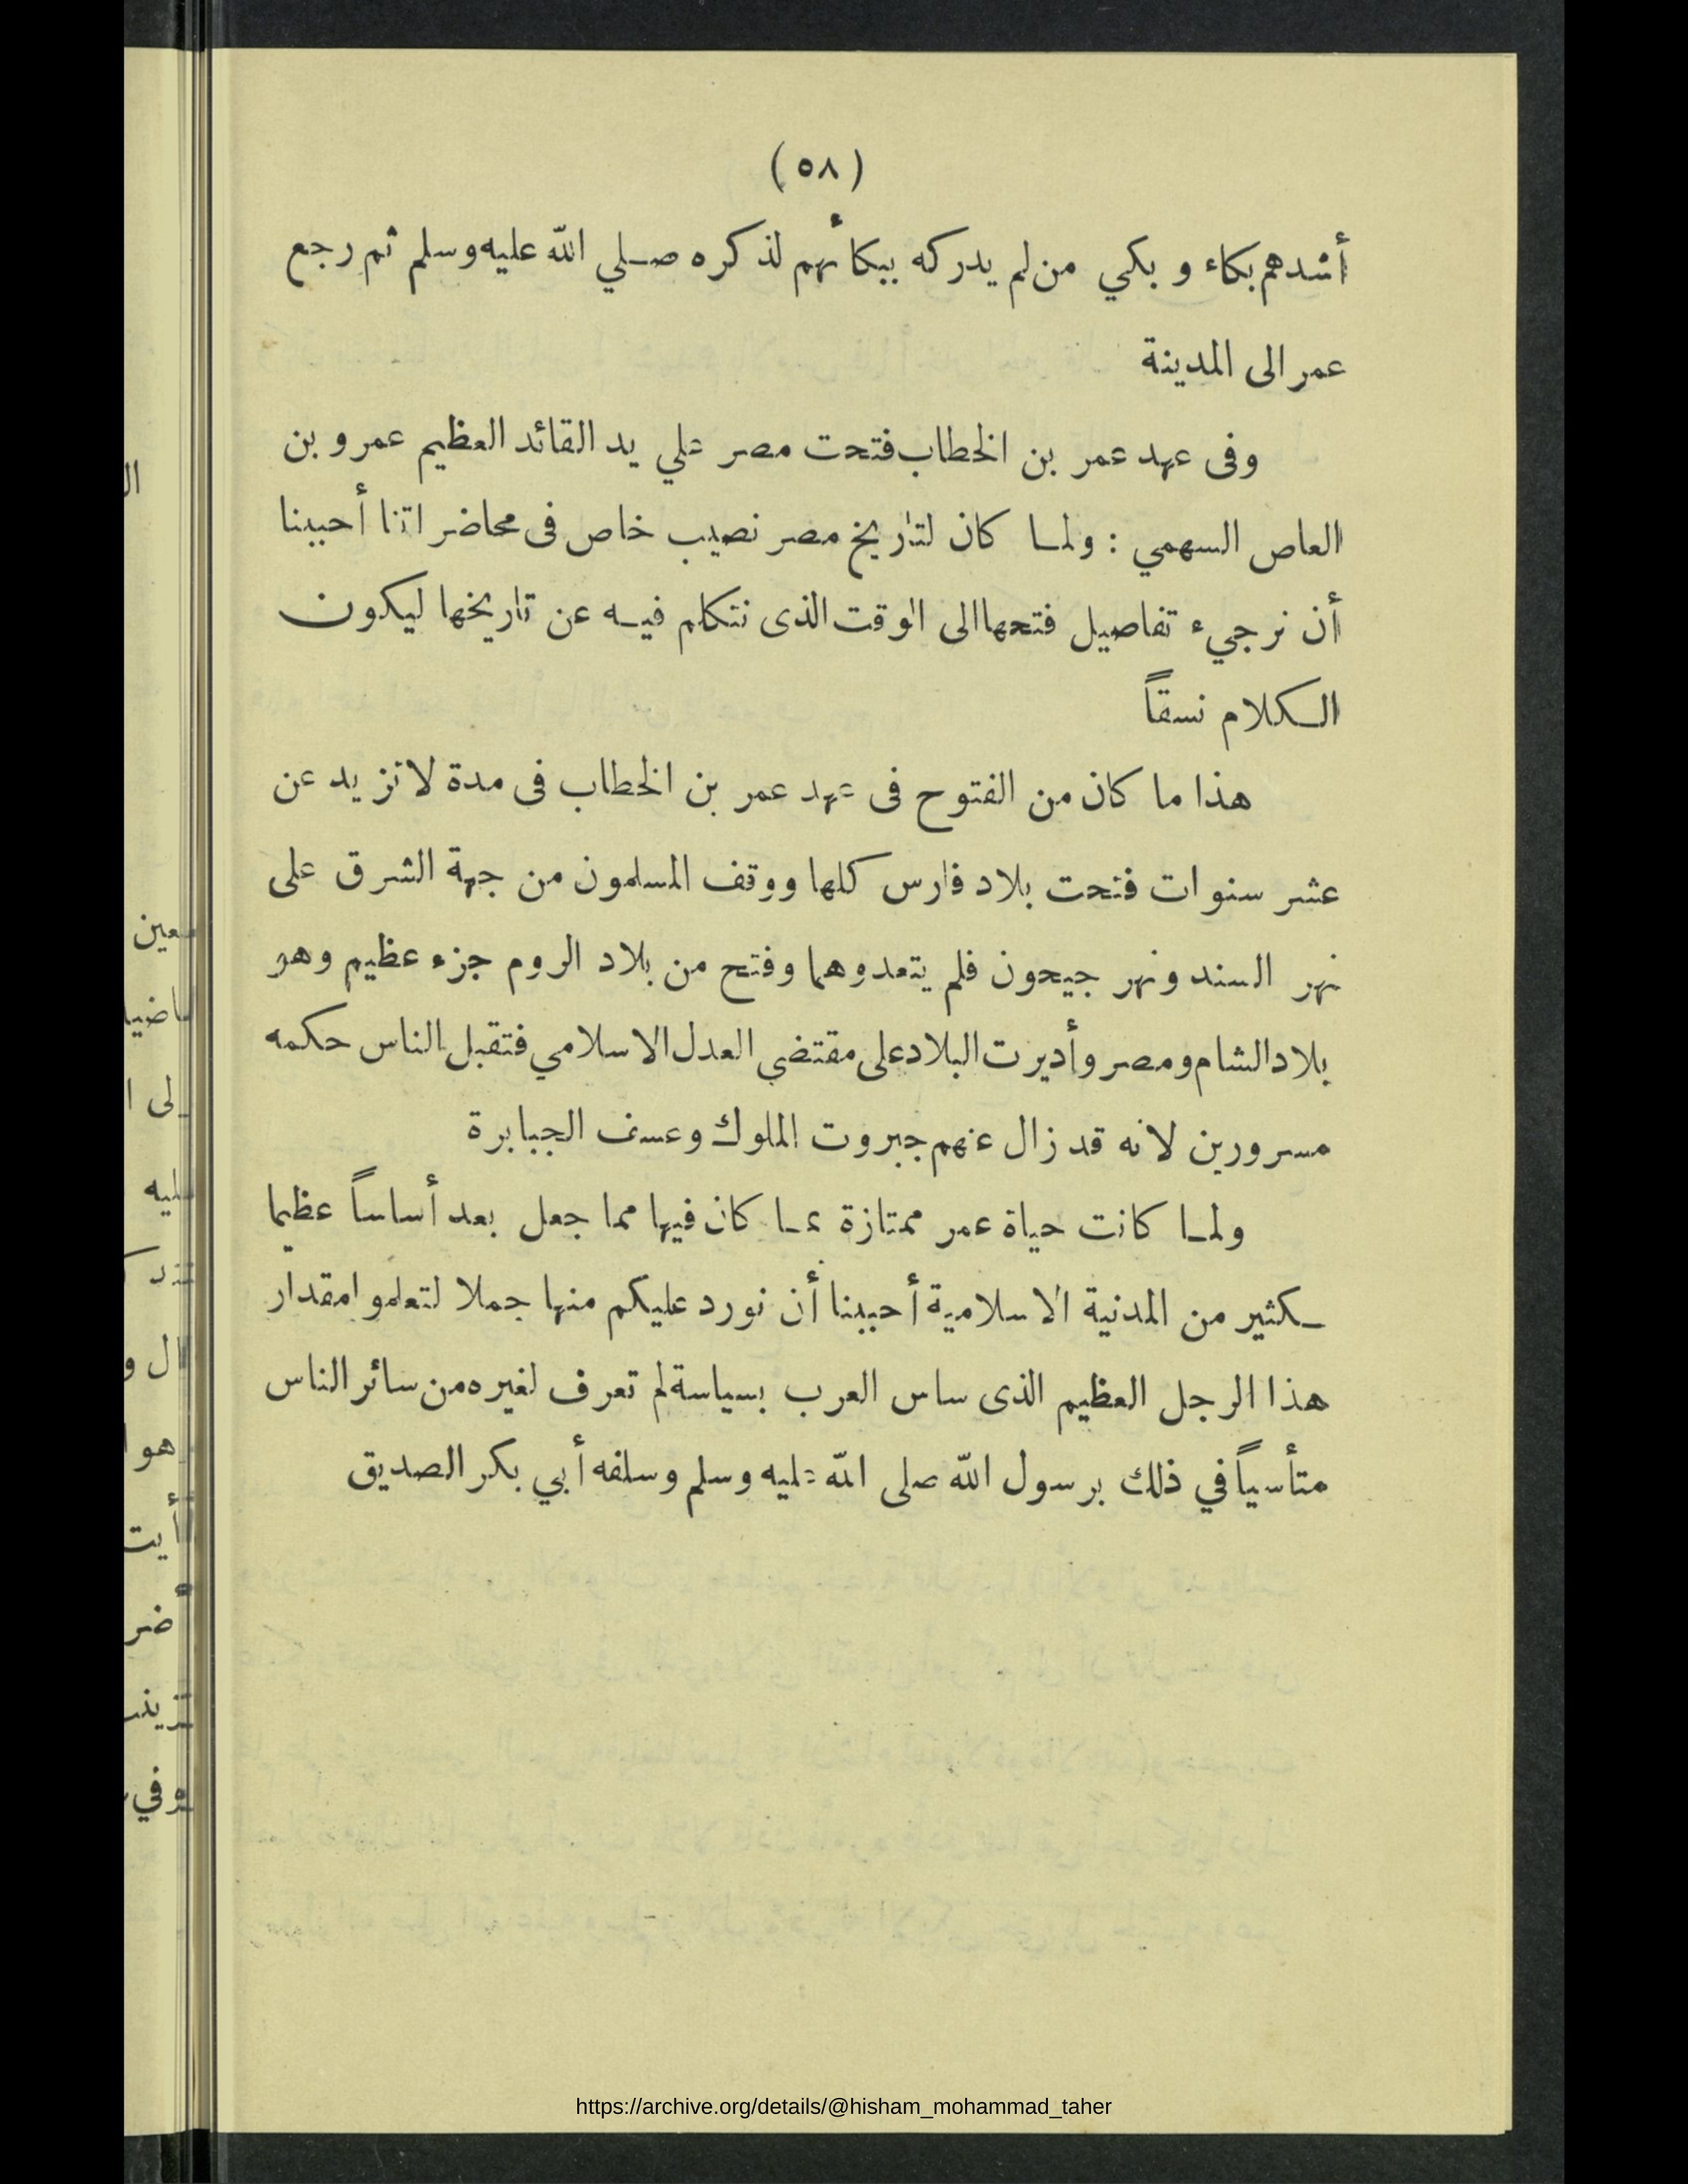 (٥٨)
أشدهم بكاء وبكي من لم يدركه ببكائهم لذكره صلي الله عليه وسلم ثم رجع
عمر الى المدينة
وفى عهد عمر بن الخطاب فتحت مصر علي يد القائد العظيم عمرو بن
العاص السهمي : ولما كان لتاريخ مصر نصيب خاص فى محاضراتنا أحببنا
أن نرجيء تفاصيل فتحها الى الوقت الذى نتكلم فيه عن تاريخها ليكون
الكلام نسقاً
هذا ما كان من الفتوح فى عهد عمر بن الخطاب فى مدة لا تزيد عن
عشر سنوات فتحت بلاد فارس كلها ووقف المسلمون من جهة الشرق على
نهر السند ونهر جيحون فلم يتعدوهما وفتح من بلاد الروم جزء عظيم وهو
بلاد الشام ومصر وأديرت البلاد على مقتضي العدل الاسلامي فتقبل الناس حكمه
مسرورين لانه قد زال عنهم جبروت الملوك وعسف الجبابرة
ولما كانت حياة عمر ممتازة عا كان فيها مما جعل بعد أساساً عظيما
كثير من المدنية الاسلامية أحببنا أن نورد عليكم منها جملا لتعلموا مقدار
هذا الرجل العظيم الذى ساس العرب بسياسة لم تعرف لغيره من سائر الناس
متأسياً في ذلك برسول الله صلى الله عليه وسلم وسلفه أبي بكر الصديق
https://archive.org/details/@hisham_mohammad_taher